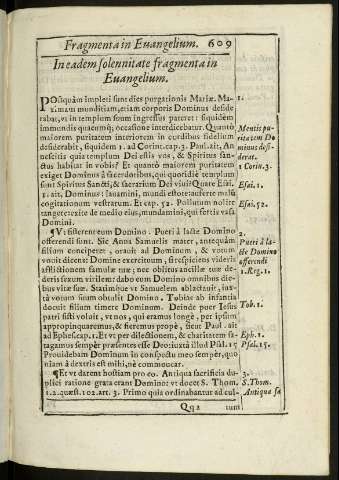 Fragmenta in Euangelium. 609
In eadem solennitate fragmenta in
Euangelium.
POstquàm impleti sunt dies purgationis Mariæ. Ma-
ximam munditiam, etiam corporis Dominus deside
rabat, vt in templum suum ingressus pateret: siquidem
immundis quatenus, occasione interdicebatur. Quantò
maiorem puritatem interiorem in cordibus fidelium
desiderabit, siquidem 1. ad Corint. cap. 3. Paul. ait, An
nescitis quia templum Dei estis vos, & Spiritus san-
ctus habitat in vobis? Et quantò maiorem puritatem
exiget Dominus à sacerdotibus, qui quotidiè templum
sunt Spiritus Sancti, & sacrarium Dei viui? Quare Esai.
1. ait, Dominus: lauamini, mundi estote: auferte malũ
cogitationum vestrarum. Et cap. 52. Pollutum nolite
tangere: exite de medio eius, mundamini, qui fertis vasa
Domini.
¶ Vt sisterent eum Domino. Pueri à lacte Domino
offerendi sunt. Sic Anna Samuelis mater, antequàm
filium conciperet, orauit ad Dominum, & votum
vouit dicens: Domine exercituum, si respiciens videris
afflictionem famulæ tuæ; nec oblitus ancillæ tuæ de-
deris sexum virilem: dabo eum Domino omnibus die
bus vitæ suæ. Statimque vt Samuelem ablactauit, iux-
tà votum suum obtulit Domino. Tobias ab infantia
docuit filium timere Dominum. Deinde puer Iesus
patri sisti voluit, vt nos, qui eramus longè, per ipsum
appropinquaremus, & fieremus propè, sicut Paul. ait
ad Ephes. cap. 1. Et vt per dilectionem, & charitatem fa-
tagamus semper præsentes esse Deo: iuxtà illud Psal. 15
Prouidebam Dominum in conspectu meo semper, quo
niam à dextris est mihi, nè commouear.
¶ Et vt darent hostiam pro eo. Antiqua sacrificia du-
plici ratione grata erant Domino: vt docet S. Thom.
1. 2. quæst. 102. art. 3. Primò quia ordinabantur ad cul-
Qq 2 tum
1.
Mentis pu-
ritatem Do
minus desi-
derat.
1. Corin. 3.
Esai. 1.
Esai. 52.
2.
Pueri à la-
cte Domino
offerendi
1. Reg. 1.
Tob. 1.
Eph. 1.
Psal. 15.
3.
S. Thom.
Antiqua sa